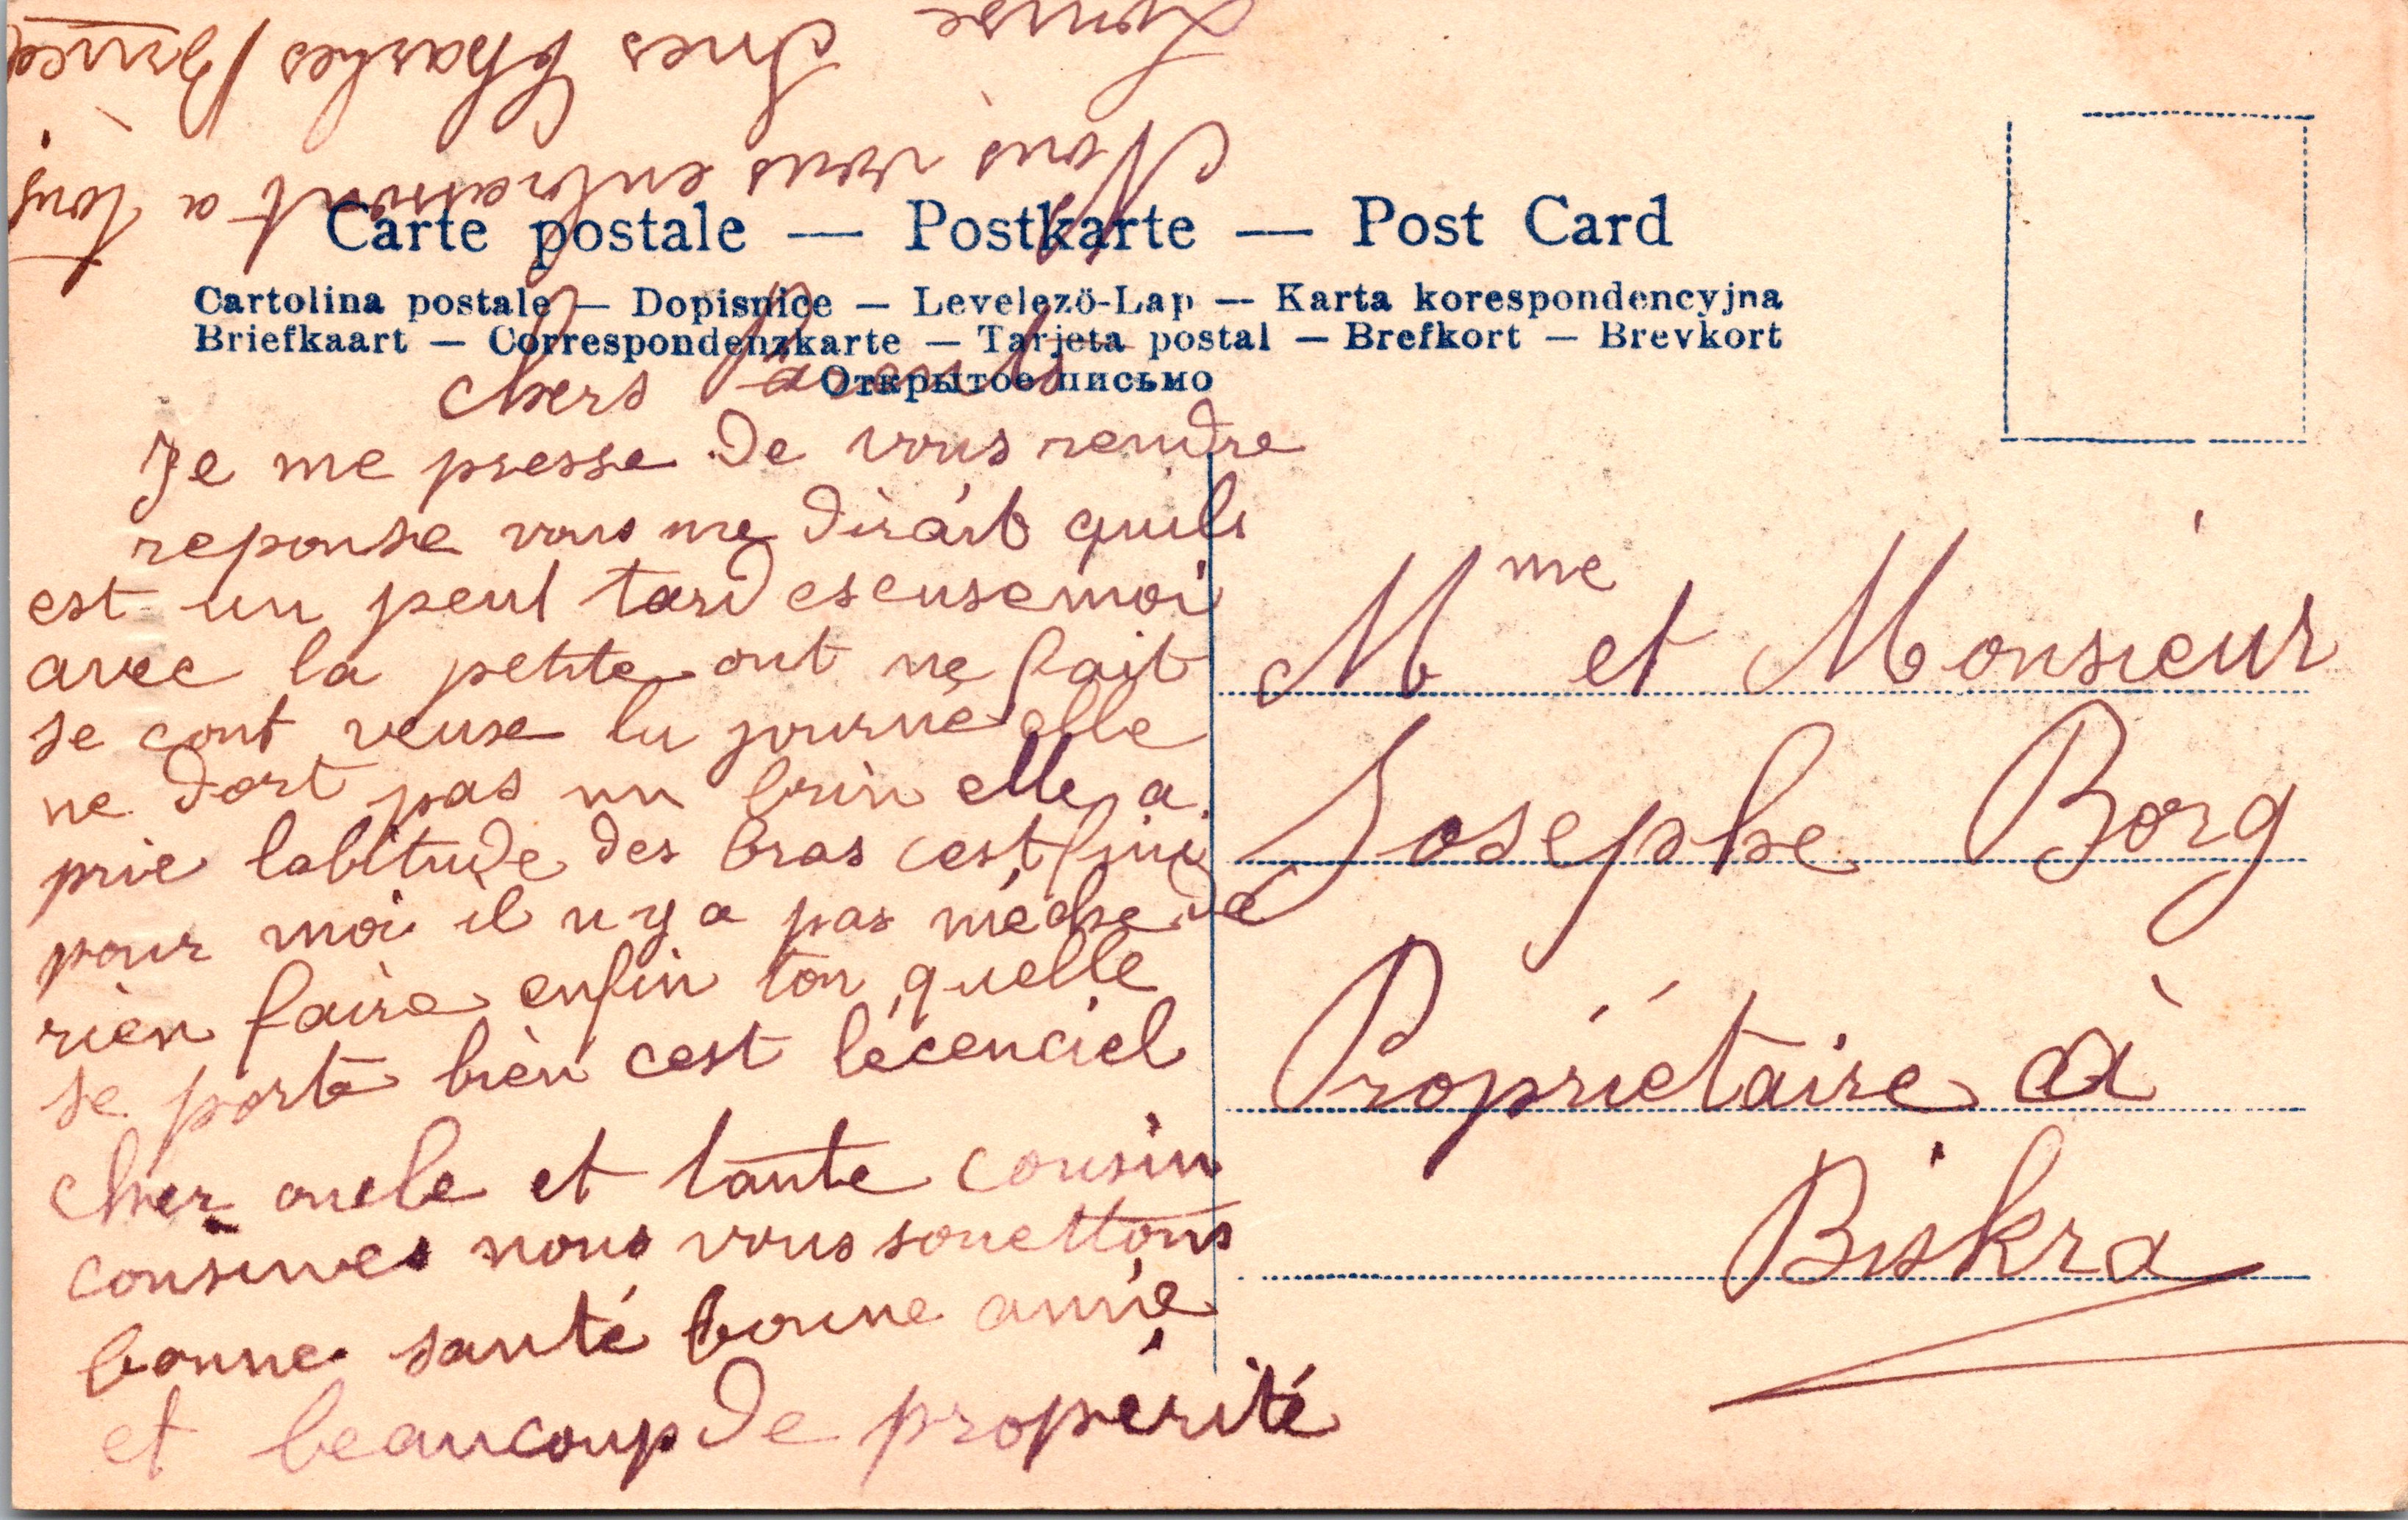 Carte postale — Postkarte — Post Card
Cartolina postale — Dopisnice — Levelezö-Lap — Karta korespondencyjna
Briefkaart — Correspondenzkarte — Tarjeta postal — Brefkort — Brevkort
Открытое письмо
Chers Parents
Je me presse de vous rendre
reponse vous me dirait quils
est un peut tard escusemoi
avec la petite ont ne fait
se cont veuse lu journé elle
ne dort pas un brin elle a
prie labitude des bras cest fini
pour moi il n y a pas méche de
rien faire enfin ton quelle
se porte bien cest lécenciel
cher oncle et tante cousin
cousines nous vous souettons
bonne santé bonne année
et beaucoup de propérité
Nous vous enbrassont a tous
Lonise Ines Charles
Mme et Monsieur
Josephe Borg
Propriétaire à
Biskra